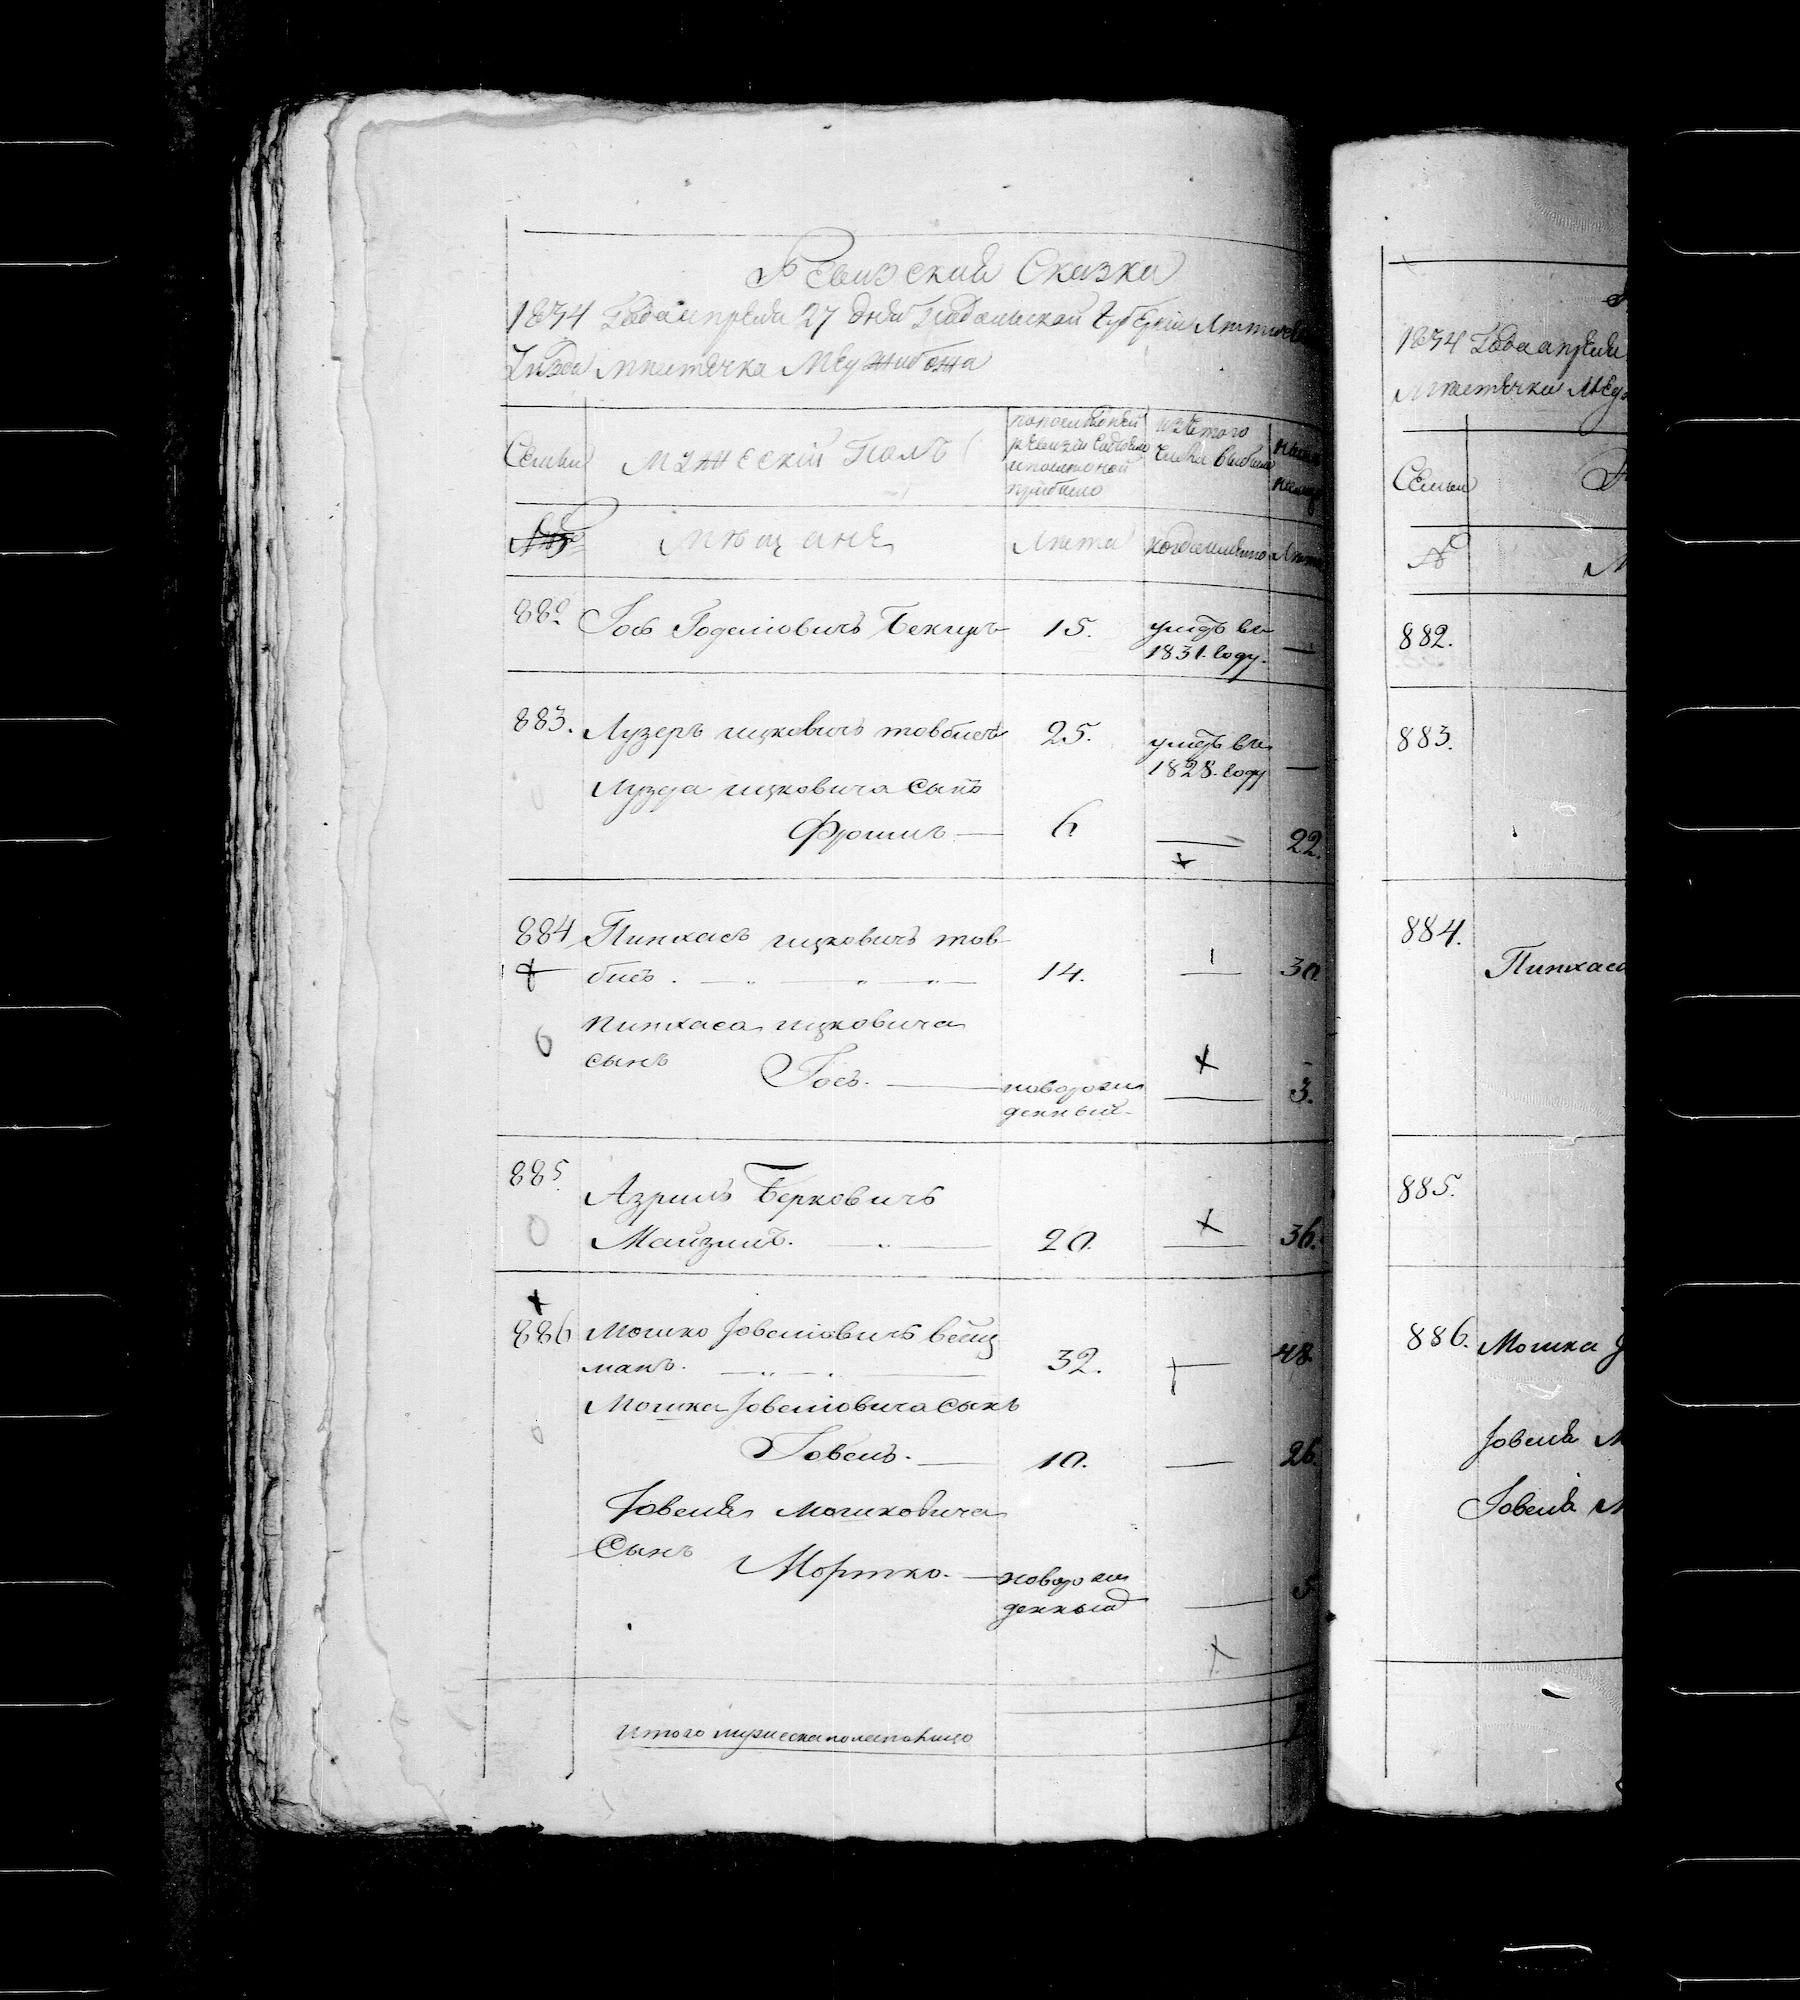 Ревизский Сказка
1834 Года апреля 27 дня Подольской Губернии
Уезда местечка Меджибожа
Семьи
мужескій Полъ
по последней
ревизіи состояло
и после оной
прибыло
изъ того
числа выбыло
№
мещане
Лета
когда именно
882
Іось Іоделіовичъ
15.
умеръ въ
1831. году.
—
883.
Лузеръ ицковичъ товбисъ
25.
умеръ въ
1828. году
—
Лузера ицковича сынъ
Фроимъ —
6
—
22.
884
Пинхасъ ицковичъ тов-
бисъ.
14.
—
30
Пинхаса ицковича
сынъ
Іось. —
новорож
денный
—
3.
885.
Азриль Берковичъ
20.
—
36.
886
Мошко Іовеліовичъ вейц
манъ.
32.
—
48
Мошка Іовеліовича сынъ
Іовель. —
10.
—
26.
Іовеля Мошковича
Сынъ
Мортко. —
новорож
денный
—
5
Итого мужеска пола на лицо
1834 Года апреля
местечка
Семьи
№
882.
883.
884.
Пинхаса
885.
886.
Мошка
Іовеля
Іовеля